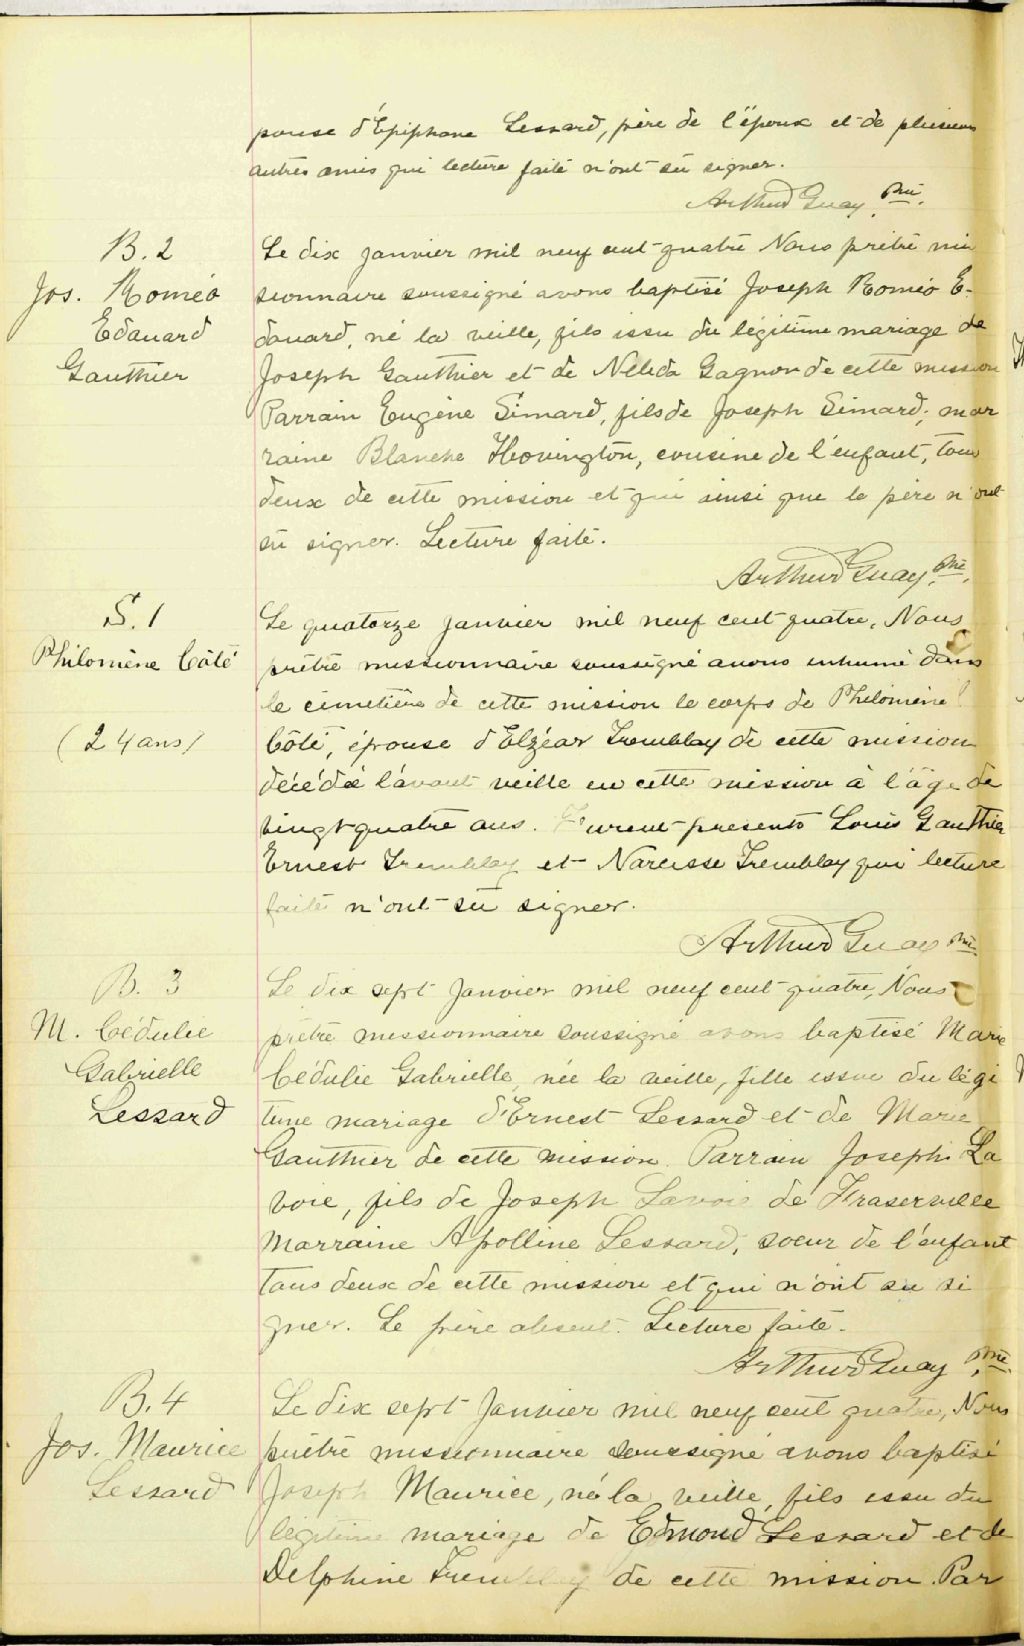 pouse d'Épiphane Lessard, père de l'époux et de plusieurs
autres amis qui lecture faite n'ont su signer.
Arthur Guay, ptre.
B. 2
Jos. Roméo
Edouard
Gauthier
Le dix janvier mil neuf cent quatre Nous prêtre mis
sionnaire soussigné avons baptisé Joseph Roméo E-
douard, né la veille, fils issu du légitime mariage de
Joseph Gauthier et de Nelida Gagnon de cette mission
Parrain Eugène Simard, fils de Joseph Simard, mar
raine Blanche Hovington, cousine de l'enfant, tous
deux de cette mission et qui ainsi que le père n'ont
su signer. Lecture faite.
Arthur Guay, ptre.
S. 1
Philomène Côté
(24 ans)
Le quatorze janvier mil neuf cent quatre, Nous
prêtre missionnaire soussigné avons inhumé dans
le cimetière de cette mission le corps de Philomène
Côté, épouse d'Elzéar Tremblay de cette mission
décédée l'avant veille en cette mission à l'âge de
vingt-quatre ans. Furent présents Louis Gauthier
Ernest Tremblay et Narcisse Tremblay qui lecture
faite n'ont su signer.
Arthur Guay ptre
B. 3
M. Cédulie
Gabrielle
Lessard
Le dix sept Janvier mil neuf cent quatre, Nous
prêtre missionnaire soussigné avons baptisé Marie
Cédulie Gabrielle, née la veille, fille issue du légi
time mariage d'Ernest Lessard et de Marie
Gauthier de cette mission. Parrain Joseph La
voie, fils de Joseph Lavoie de Fraserville
Marraine Apolline Lessard, soeur de l'enfant
tous deux de cette mission et qui n'ont su si
gner. Le père absent. Lecture faite.
Arthur Guay ptre.
B. 4
Jos. Maurice
Lessard
Le dix sept Janvier mil neuf cent quatre, Nous
prêtre missionnaire soussigné avons baptisé
Joseph Maurice, né la veille, fils issu du
légitime mariage de Edmond Lessard et de
Delphine Tremblay de cette mission. Par